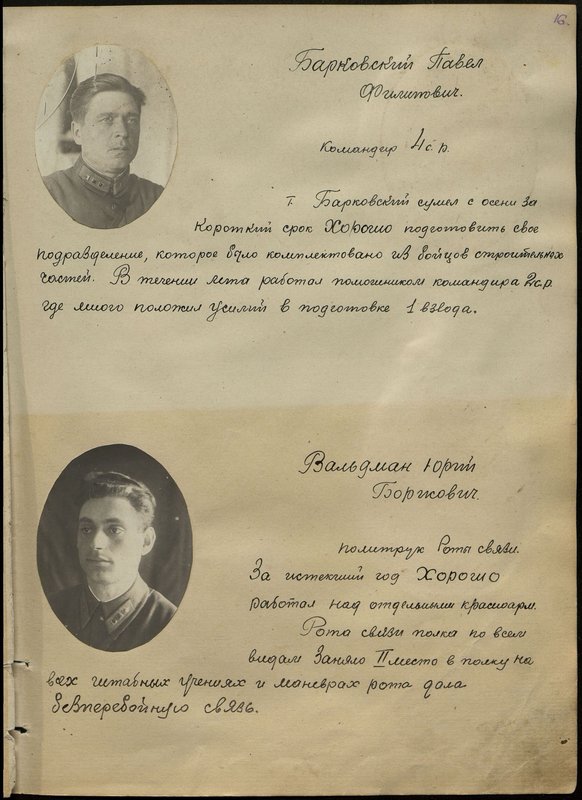 16.
Барковский Павел
Филипович.
Командир 4 с.р.
т. Барковский сумел с осени за
короткий срок хорошо подготовить свое
подразделение, которое было комплектовано из бойцов строительных
частей. В течении лета работал помошником командира 2 с.р.
где много положил усилий в подготовке 1 взвода.
Вальдман Юрий
Борисович.
политрук Роты связи.
За истекший год Хорошо
работал над отдельными красноарм.
Рота связи полка по всем
видам Заняло II место в полку на
всех штабных учениях и маневрах рота дала
безперебойную связь.